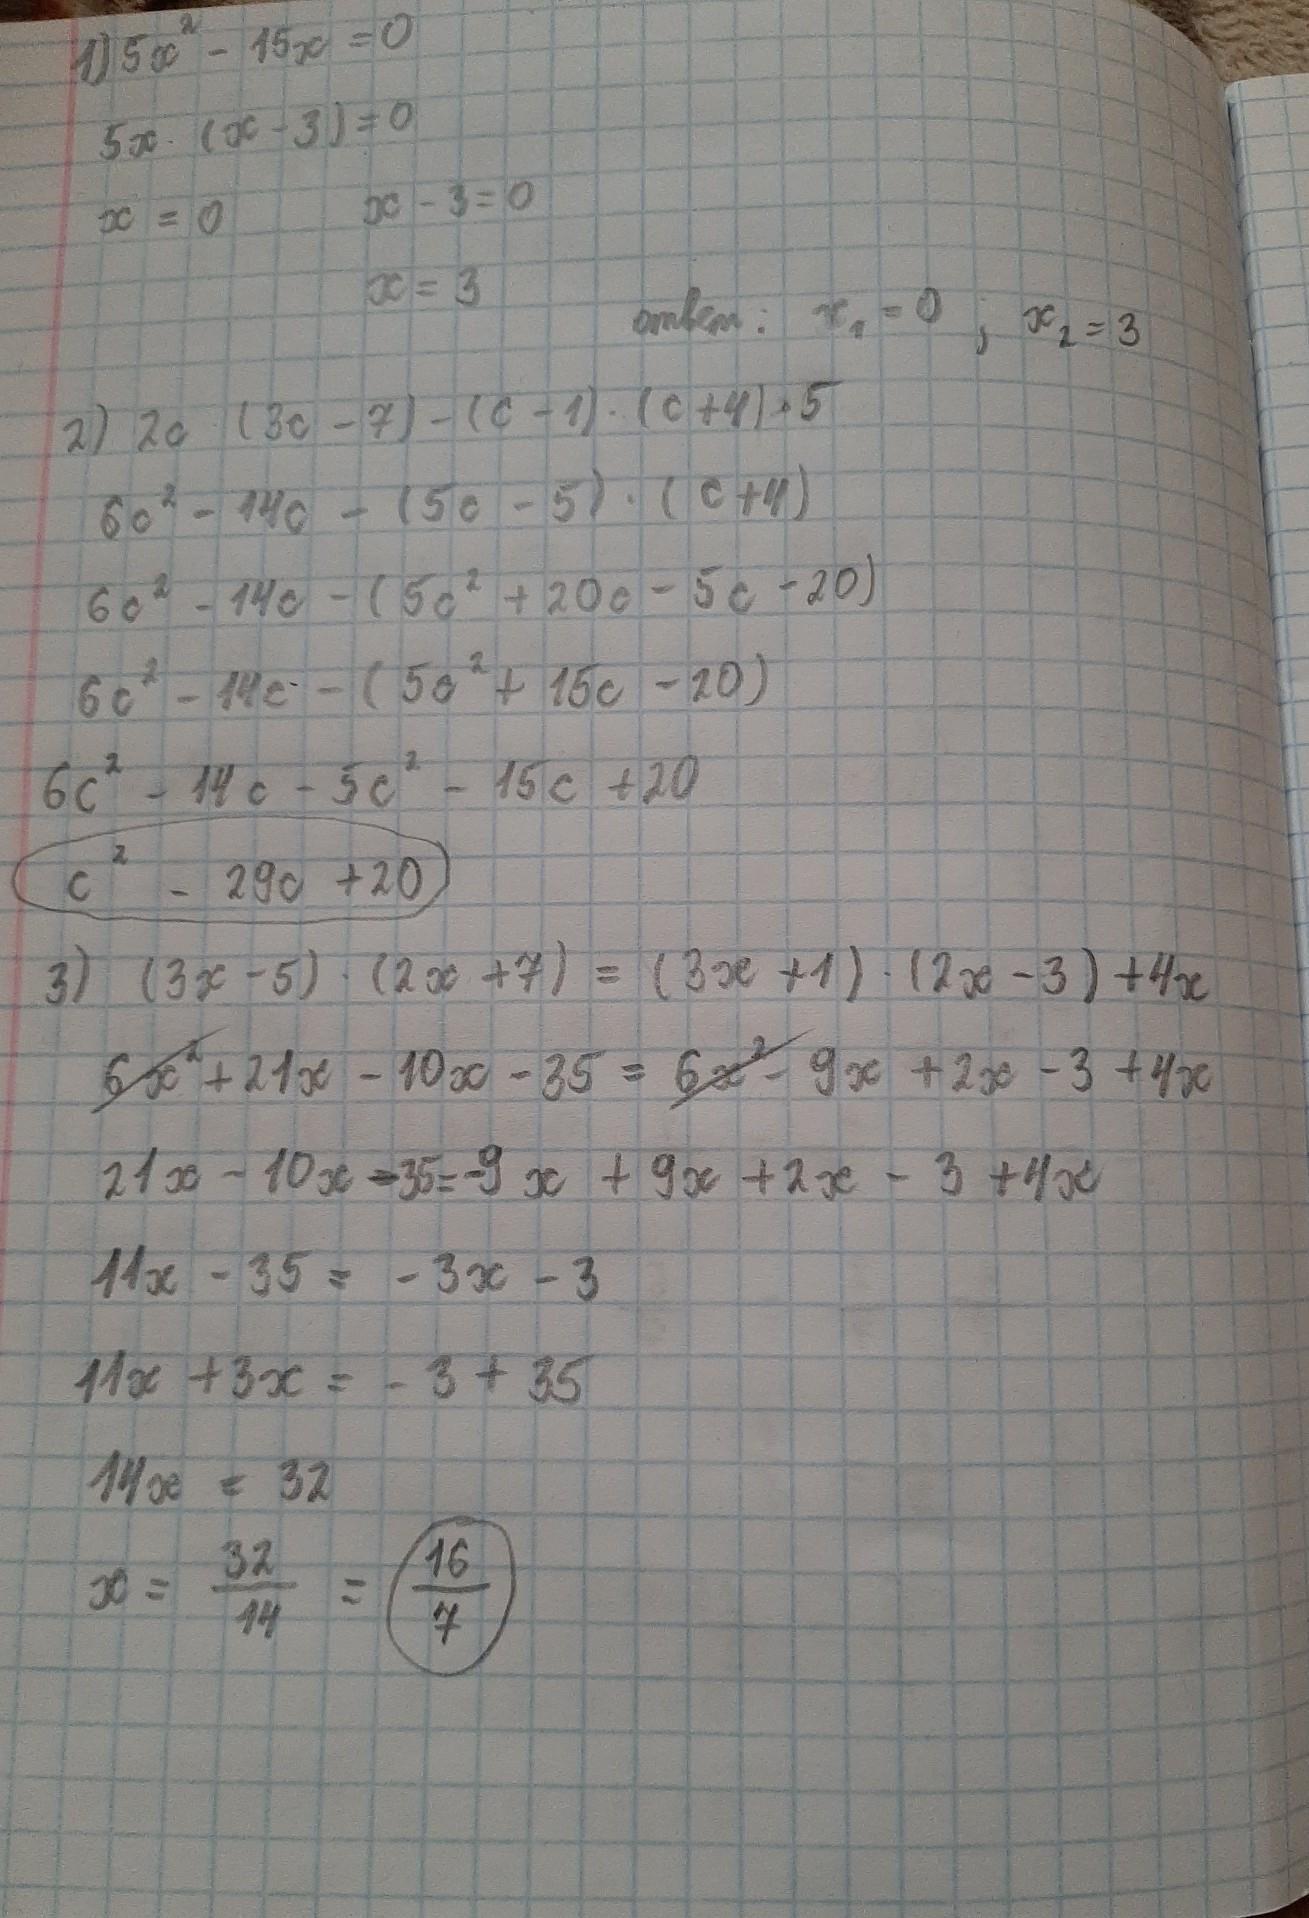 1) 5x² - 15x = 0
5x · (x - 3) = 0
x = 0 x - 3 = 0
x = 3
ответ: x₁ = 0 ; x₂ = 3
2) 2c · (3c - 7) - (c - 1) · (c + 4) · 5
6c² - 14c - (5c - 5) · (c + 4)
6c² - 14c - (5c² + 20c - 5c - 20)
6c² - 14c - (5c² + 15c - 20)
6c² - 14c - 5c² - 15c + 20
c² - 29c + 20
3) (3x - 5) · (2x + 7) = (3x + 1) · (2x - 3) + 4x
6x² + 21x - 10x - 35 = 6x² - 9x + 2x - 3 + 4x
21x - 10x - 35 = -9x + 9x + 2x - 3 + 4x
11x - 35 = - 3x - 3
11x + 3x = - 3 + 35
14x = 32
x = 32/14 = 16/7